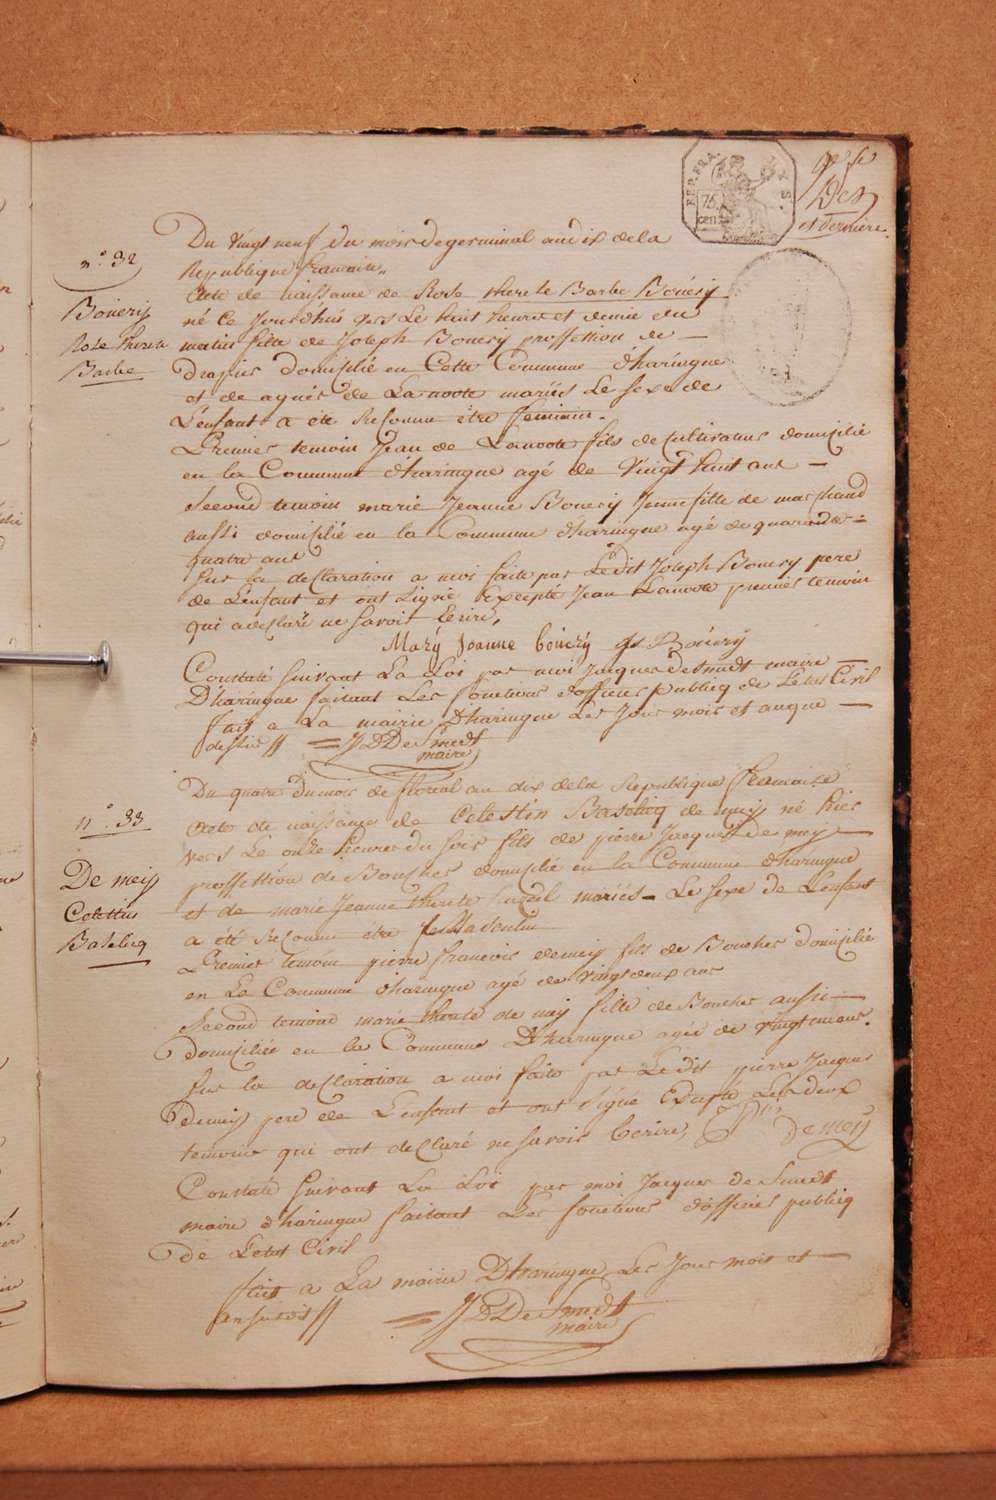 REP. FRA.
75
cen
et derniere
n.° 32
Bouerÿ
Rose Therese
Barbe
Du vingt neuf du mois de germinal an dix de la
Republique francaise.
Acte de naissance de Rose therese Barbe Bouerÿ
né ce jourdhui vers Le huit heures et demie du
matin fille de Joseph Bouerÿ proffession de
Drapier Domicilié en Cette Commune dharingue
et de agnes de Lanoote mariés Le sexe de
L'enfant a été Reconnu être feminin.
Premier temoin Jean de Lanoote fils de Cultivateur domicilié
en la Commune dharingue agé de Vingt huit ans
Second temoin marie Jeanne Bouerÿ Jeune fille de marchand
aussi domicilié en la Commune dharingue agé de quarande
quatre ans
Sur la declaration a moi faite par Ledit Joseph Bouerÿ pere
de L'enfant et ont signé Excepté Jean Lanoote premier temoin
qui a declaré ne savoir Ecrire,
Marÿ Joanne bouerÿ Js Bouerÿ
Constaté suivant La Loi par moi Jacques Desmedt maire
Dharingue faisant Les fonctions dofficier publicq de Letat Civil
fait a La mairie Dharingue Les Jour mois et an que
dessus // JDDeSmedt
maire
n.° 33
De meÿ
Celestin
Baselicq
Du quatre du mois de floreal an dix de la Republique francaise
Acte de naissance de Celestin Baselicq de meij né hier
vers Le onze heures du soir fils de pierre Jacques de meÿ
proffession de Boucher domicilié en la Commune dharingue
et de marie Jeanne therese mariés Le sexe de L'enfant
a été Reconnu etre Masculin
Premier temoin pierre francois demeij fils de Boucher domicilié
en La Commune dharingue agé de vingt deux ans
Second temoin marie therese de meij fille de Boucher aussi
Domiciliée en la Commune Dharingue agée de vingt un ans.
Sur la declaration a moi faite par Ledit pierre Jacques
Demeij pere de L'enfant et ont signé Excepté Les deux
temoins qui ont declaré ne savoir Ecrire, de meÿ
Constaté suivant La Loi par moi Jacques de Smedt
maire dharingue faisant Les fonctions dofficier publicq
de L'etat Civil
fait a La mairie Dharingue Les Jour mois et
an susdit // JDDeSmedt
maire